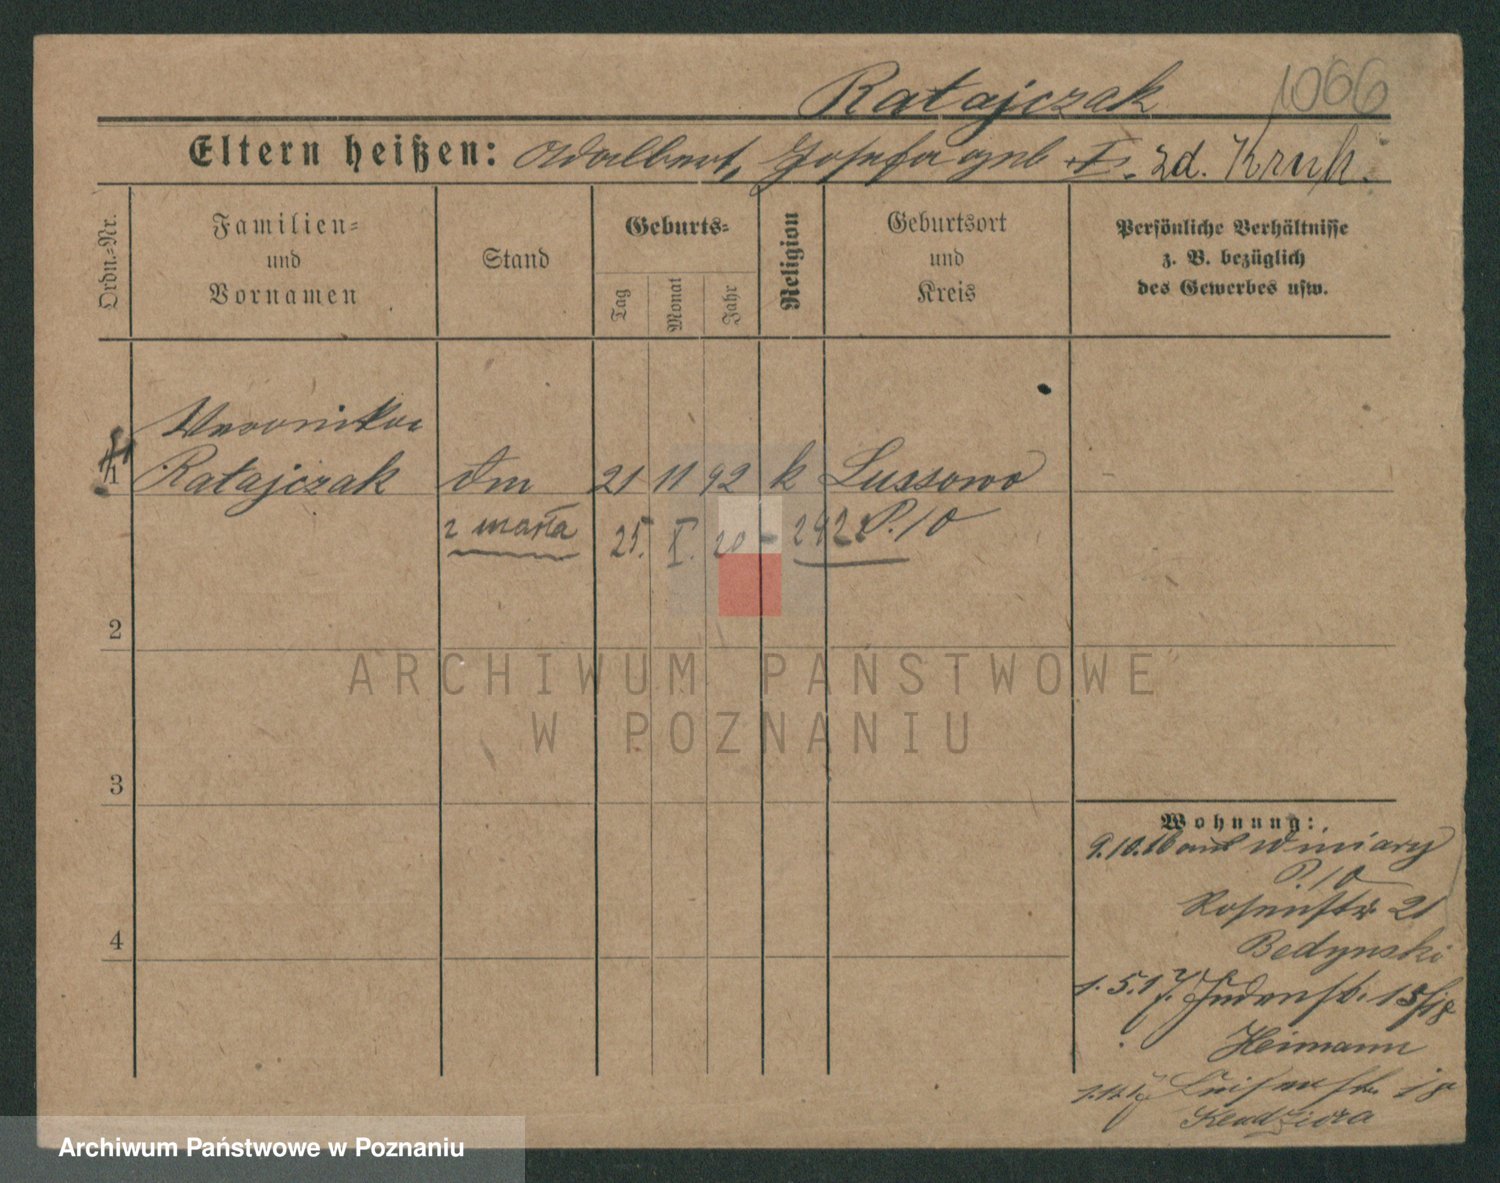 Ratajczak 1066
Eltern heißen: Adalbert, Josefa geb. I. zd. Kruk.
Ordn.-Nr.
Familien-
und
Vornamen
Stand
Geburts-
Tag
Monat
Jahr
Religion
Geburtsort
und
Kreis
Persönliche Verhältnisse
z. B. bezüglich
des Gewerbes usw.
Weronika
1 Ratajczak dm 21 11 92 k Lussowo
P. 10
zmarła 25. X. 20 - 2422
2
3
4
Wohnung:
9.10.16 aus Winiary
P. 10
Rosenstr. 21
Bedynski
1.5.17. Judenstr. 15/18
Heimann
Luisenstr. 18
Kendziora
ARCHIWUM PAŃSTWOWE
W POZNANIU
Archiwum Państwowe w Poznaniu